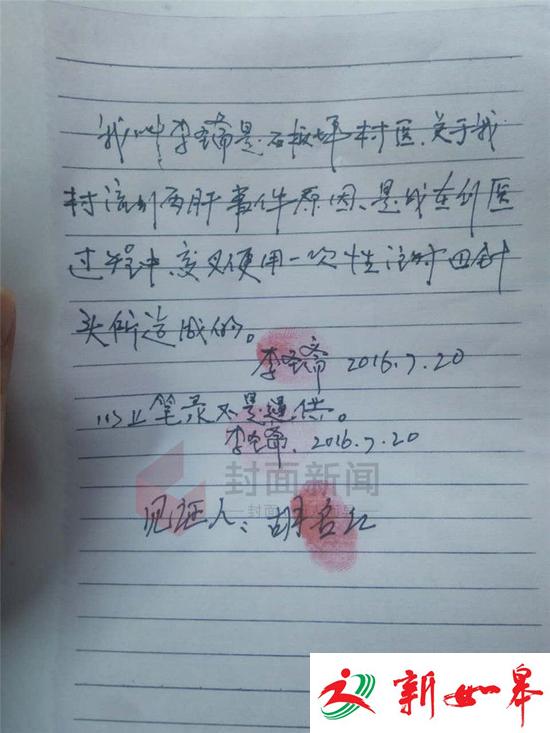 我叫李是石板坪村医.关于我
村流行丙肝事件原因、是我在行医
过程中、交叉使用一次性注射针
头所造成的。
李 2016.7.20
以上笔录不是逼供。
李. 2016.7.20
封面新闻
见证人: 胡
新如皋